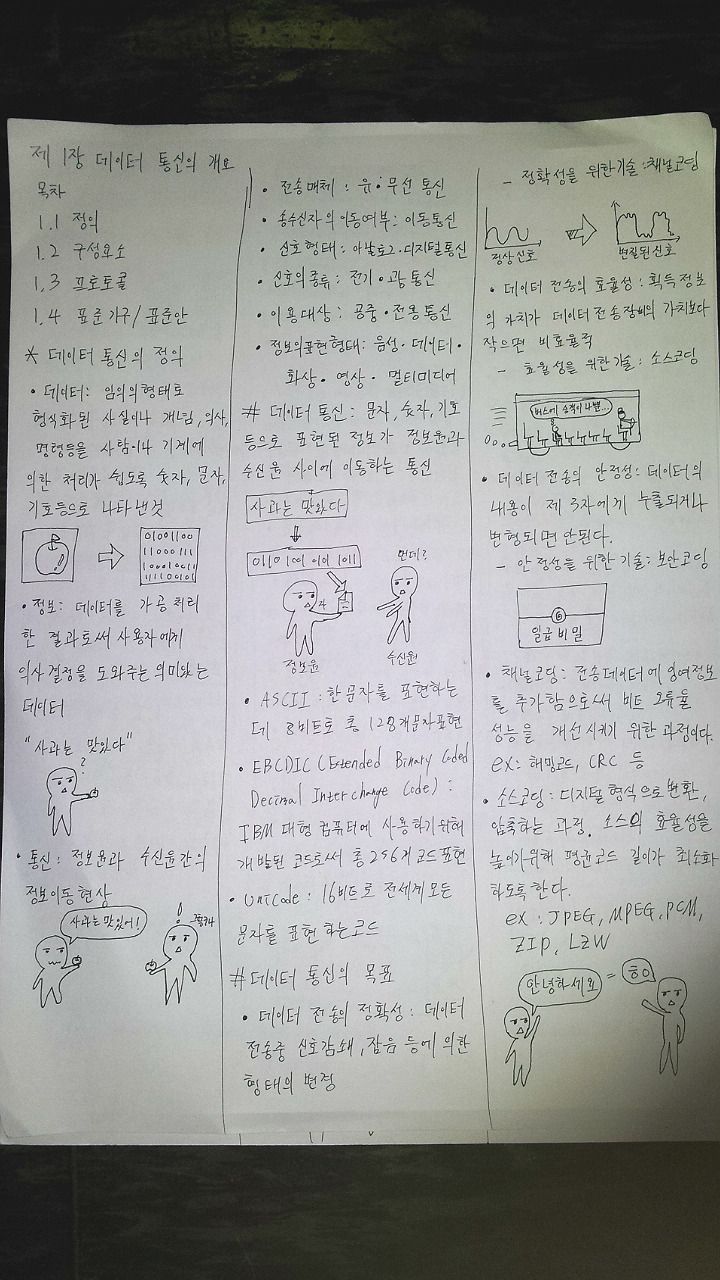 제 1장 데이터 통신의 개요
목차
1.1 정의
1.2 구성요소
1.3 프로토콜
1.4 표준기구/표준안
* 데이터 통신의 정의
• 데이터: 임의의형태로
형식화된 사실이나 개념, 의사,
명령등을 사람이나 기계에
의한 처리가 쉽도록 숫자, 문자,
기호등으로 나타낸것
01001100
11000111
10001011
11110101
• 정보: 데이터를 가공 처리
한 결과로써 사용자에게
의사결정을 도와주는 의미있는
데이터
"사과는 맛있다"
?
• 통신: 정보원과 수신원간의
정보이동현상
사과는 맛있어!
!
• 전송매체 : 유·무선 통신
• 송수신자의 이동여부: 이동통신
• 신호형태: 아날로그·디지털통신
• 신호의종류: 전기·광통신
• 이용대상: 공중·전용통신
• 정보의표현형태: 음성·데이터·
화상·영상·멀티미디어
# 데이터 통신: 문자, 숫자, 기호
등으로 표현된 정보가 정보원과
수신원 사이에 이동하는 통신
사과는 맛있다
0110 1001 0101 1011
뭔데?
정보원
수신원
• ASCII : 한문자를 표현하는
데 8비트로 총 128개문자표현
• EBCDIC (Extended Binary Coded
Decimal Interchange Code) :
IBM 대형 컴퓨터에 사용하기위해
개발된 코드로써 총 256개 코드표현
• Unicode : 16비트로 전세계모든
문자를 표현 하는코드
# 데이터 통신의 목표
• 데이터 전송의 정확성 : 데이터
전송중 신호감쇄, 잡음 등에 의한
형태의 변경
- 정확성을 위한기술 : 채널코딩
정상신호
변질된신호
• 데이터 전송의 효율성 : 획득정보
의 가치가 데이터 전송장비의 가치보다
작으면 비효율적
- 효율성을 위한기술 : 소스코딩
버스에 승객이 나뿐...
• 데이터 전송의 안정성: 데이터의
내용이 제 3자에게 누출되거나
변형되면 안된다.
- 안정성을 위한 기술: 보안코딩
일급 비밀
• 채널코딩: 전송데이터에 잉여정보
를 추가함으로써 비트 오류율
성능을 개선시키기 위한 과정이다.
ex: 해밍코드, CRC 등
• 소스코딩: 디지털형식으로변환,
압축하는 과정. 소스의 효율성을
높이기위해 평균코드 길이가 최소화
하도록한다.
ex : JPEG, MPEG, PCM,
ZIP, LZW
안녕하세요
=
ㅎㅇ